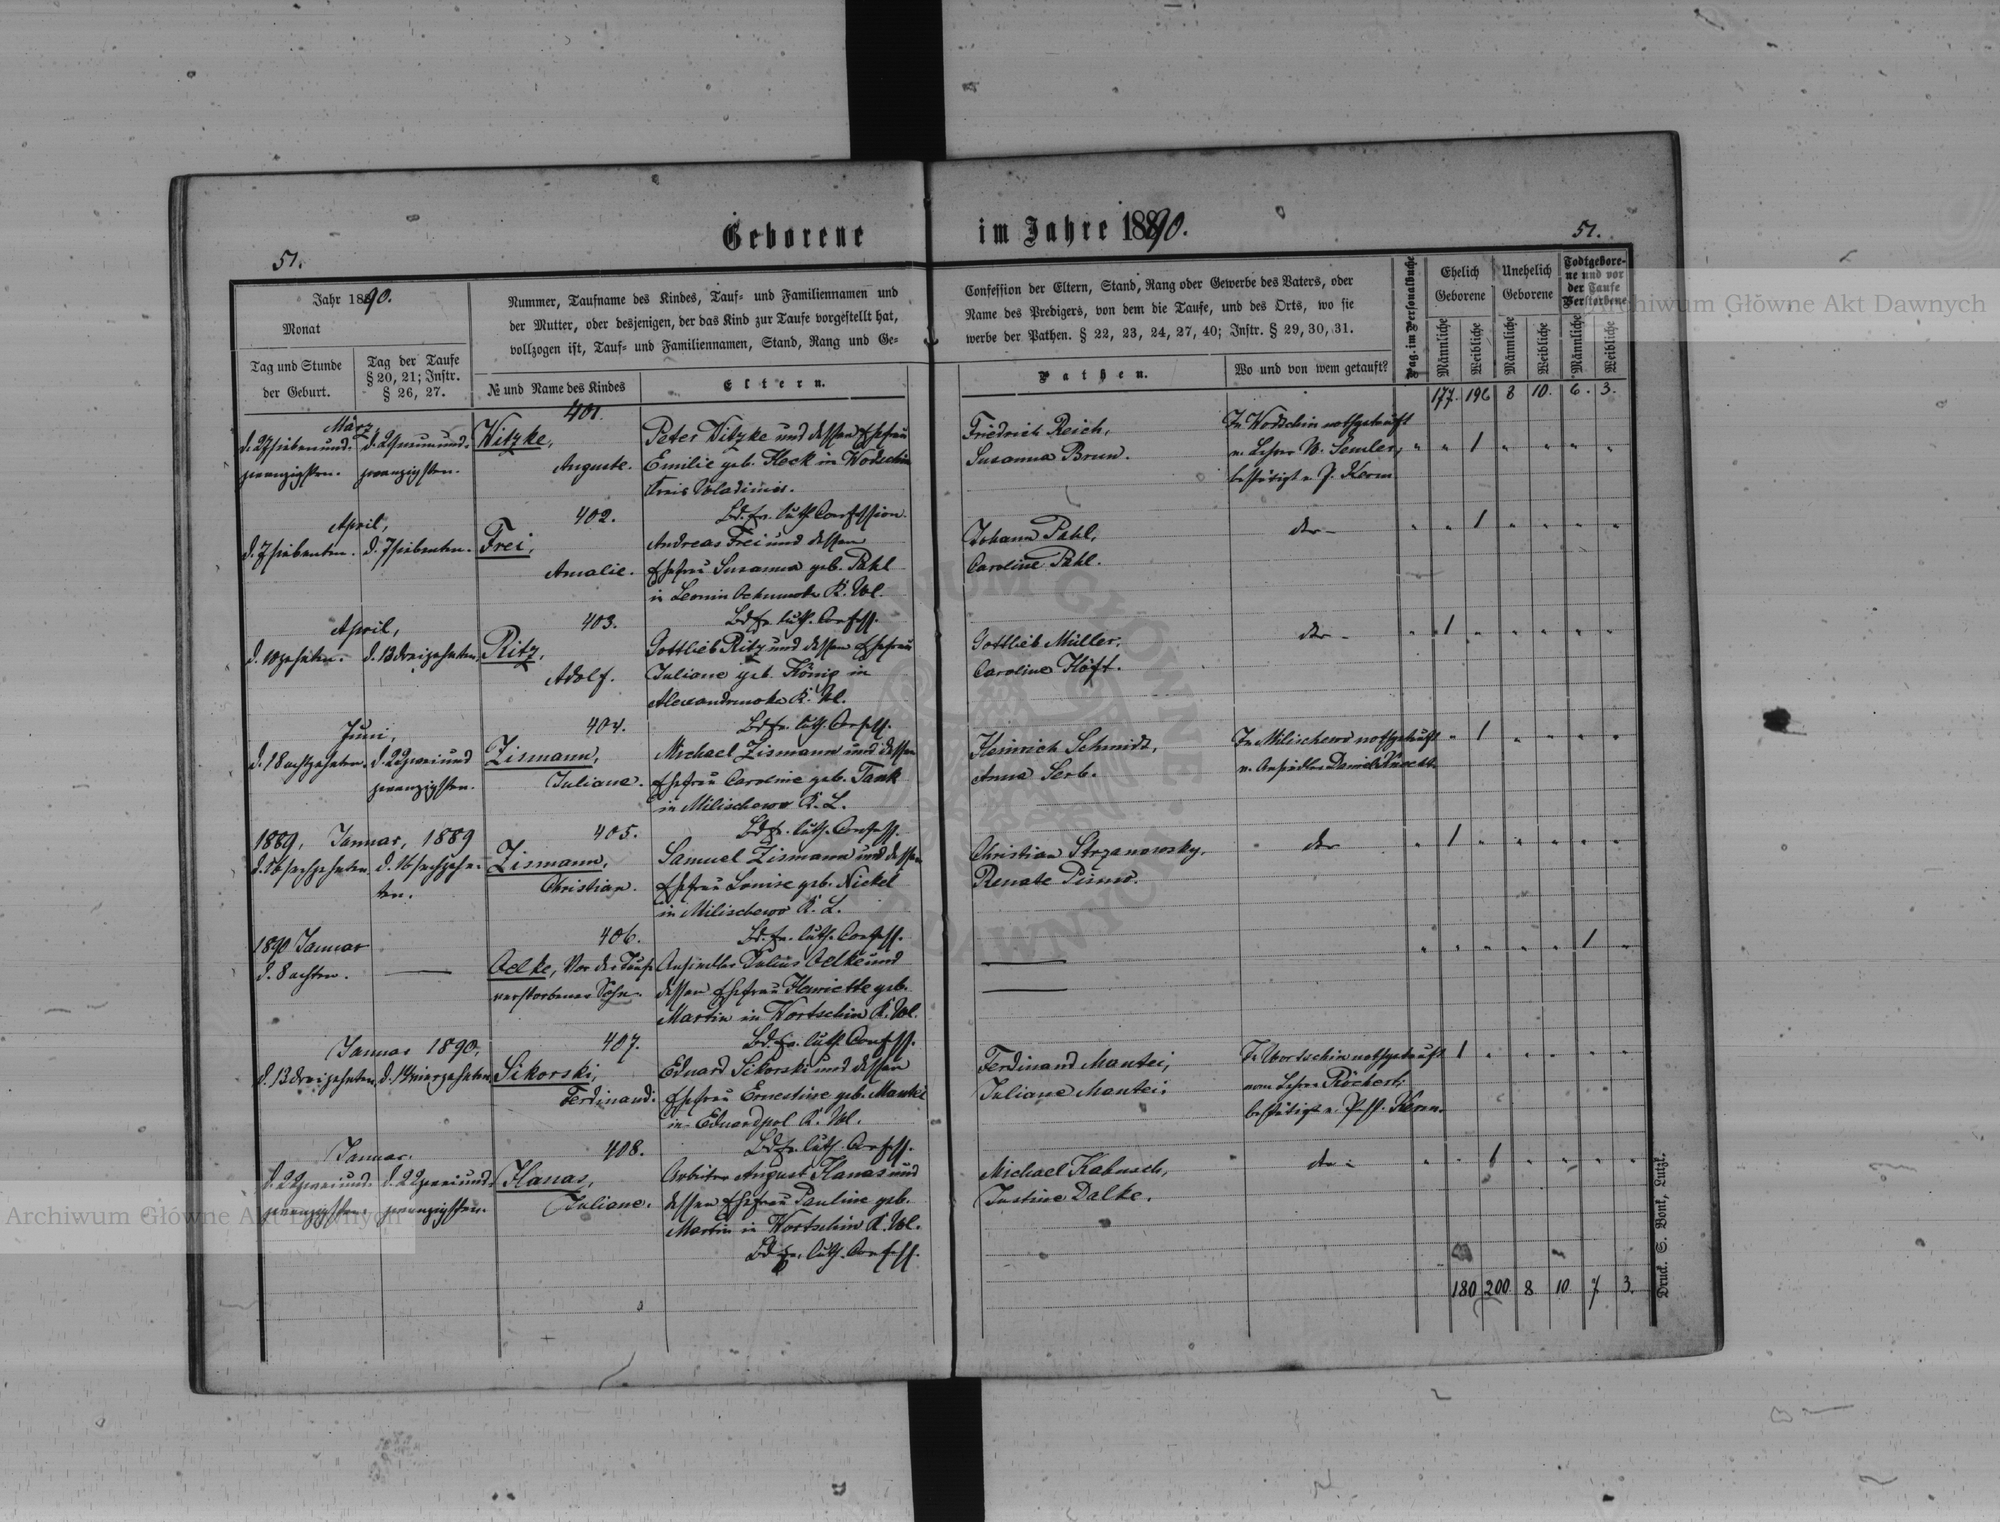 Geborene im Jahre 1890.
51.
51.
Jahr 1890.
Monat
Tag und Stunde
der Geburt.
Tag der Taufe
§ 20, 21; Instr.
§ 26, 27.
Nummer, Taufname des Kindes, Tauf= und Familiennamen und
der Mutter, oder desjenigen, der das Kind zur Taufe vorgestellt hat,
vollzogen ist, Tauf= und Familiennamen, Stand, Rang und Ge=
№ und Name des Kindes
Eltern.
Confession der Eltern, Stand, Rang oder Gewerbe des Vaters, oder
Name des Predigers, von dem die Taufe, und des Orts, wo sie
werbe der Pathen. § 22, 23, 24, 27, 40; Instr. § 29, 30, 31.
Pathen.
Wo und von wem getauft?
Pag. im Personalbuche
Ehelich
Geborene
Unehelich
Geborene
Todtgebore-
ne und vor
der Taufe
Verstorbene
Männliche
Weibliche
Männliche
Weibliche
Männliche
Weibliche
177. 196 8 10. 6. 3.
März,
d. 27 siebenund-
zwanzigsten.
d. 29 neunund-
zwanzigsten.
401.
Witzke,
Auguste.
Peter Witzke und dessen Ehefrau
Emilie geb. Heck in Wodschin
Kreis Wladimir.
Bd. ev. luth. Confession.
Friedrich Reich,
Susanna Brun.
In Wodschin nothgetauft
v. Lehrer W. Semler,
bestätigt v. P. Kern
1
April,
d. 7 siebenten.
d. 7 siebenten.
402.
Frei,
Amalie.
Andreas Frei und dessen
Ehefrau Susanna geb. Pahl
in K. Wl.
Bd. ev. luth. Confess.
Johann Pahl,
Caroline Pahl.
dto
1
April,
d. 10 zehnten.
d. 13 dreizehnten.
403.
Ritz,
Adolf.
Gottlieb Ritz und dessen Ehefrau
Juliane geb. König in
Alexandrowka K. Wl.
Bd. ev. luth. Confess.
Gottlieb Müller,
Caroline Höft.
dto
1
Juni,
d. 18 achtzehnten.
d. 22 zweiund
zwanzigsten.
404.
Zismann,
Juliane.
Michael Zismann und dessen
Ehefrau Caroline geb. Tank
in Milischewo K. L.
Bd. ev. luth. Confess.
Heinrich Schmidt,
Anna Serb.
In Milischewo nothgetauft
v. Ansiedler Daniel Knecht.
1
1889, Januar, 1889
d. 16 sechzehnten
d. 16 sechzehn-
ten.
405.
Zismann,
Christian.
Samuel Zismann und dessen
Ehefrau Louise geb. Nickel
in Milischewo K. L.
Bd. ev. luth. Confess.
Christian Strzanowsky,
Renate
dto
1
1890 Januar
d. 8 achten.
406.
Oelke, Vor der Taufe
verstorbener Sohn.
Ansiedler Julius Oelke und
dessen Ehefrau Henriette geb.
Martin in Wortschin K. Wl.
Bd. ev. luth. Confess.
1
Januar 1890.
d. 13 dreizehnten
d. 14 vierzehnten
407.
Sikorski,
Ferdinand.
Eduard Sikorski und dessen
Ehefrau Ernestine geb. Mantei
in Eduardpol K. Wl.
Bd. ev. luth. Confess.
Ferdinand Mantei,
Juliane Mantei.
In Wortschin nothgetauft
vom Lehrer Röchert;
bestätigt v. Past. Kern.
1
Januar.
d. 22 zweiund-
zwanzigsten.
d. 22 zweiund-
zwanzigsten.
408.
Hanas,
Juliane.
Arbeiter August Hanas und
dessen Ehefrau Pauline geb.
Martin in Wortschin K. Wl.
Bd. ev. luth. Confess.
Michael Kabusch,
Justine Dalke.
dto
1
180 200 8 10 7 3.
Druck. S. Bonk, Lutzk.
Archiwum Główne Akt Dawnych
Archiwum Główne Akt Dawnych